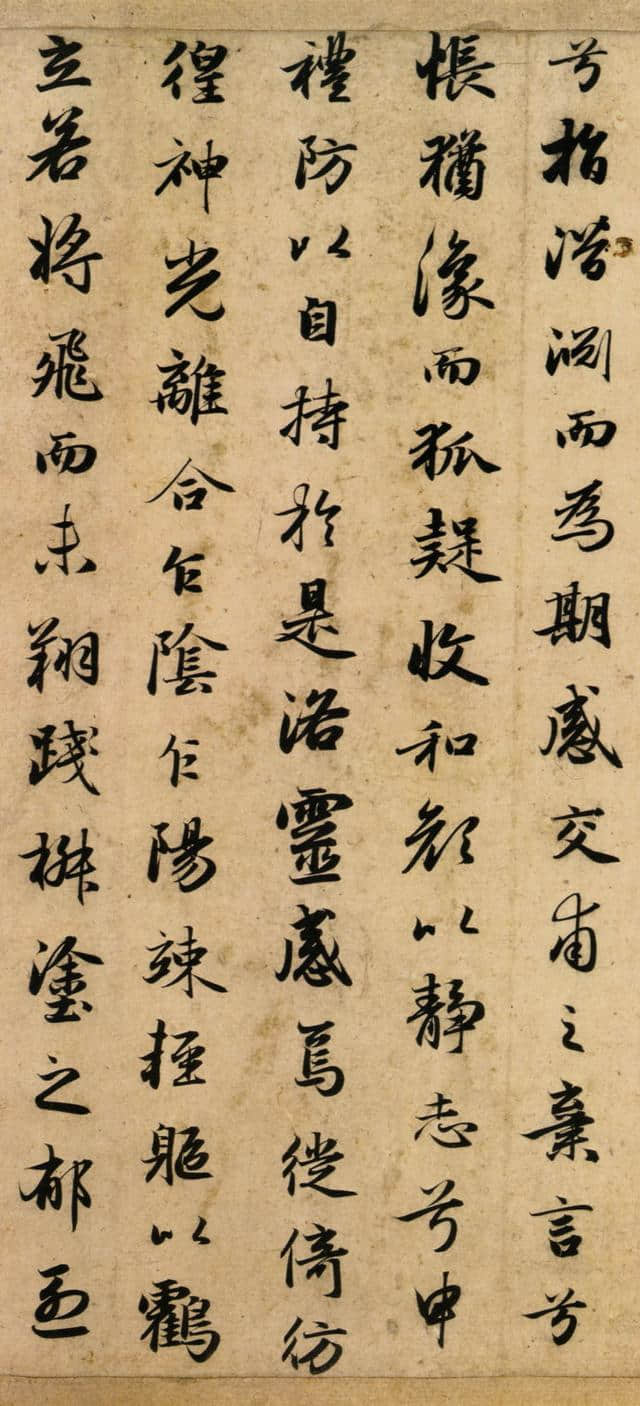 兮指潛淵而為期感交甫之棄言兮
悵猶豫而狐疑收和顏以靜志兮申
禮防以自持於是洛靈感焉徙倚彷
徨神光離合乍陰乍陽竦輕軀以鸖
立若將飛而未翔踐椒塗之郁烈